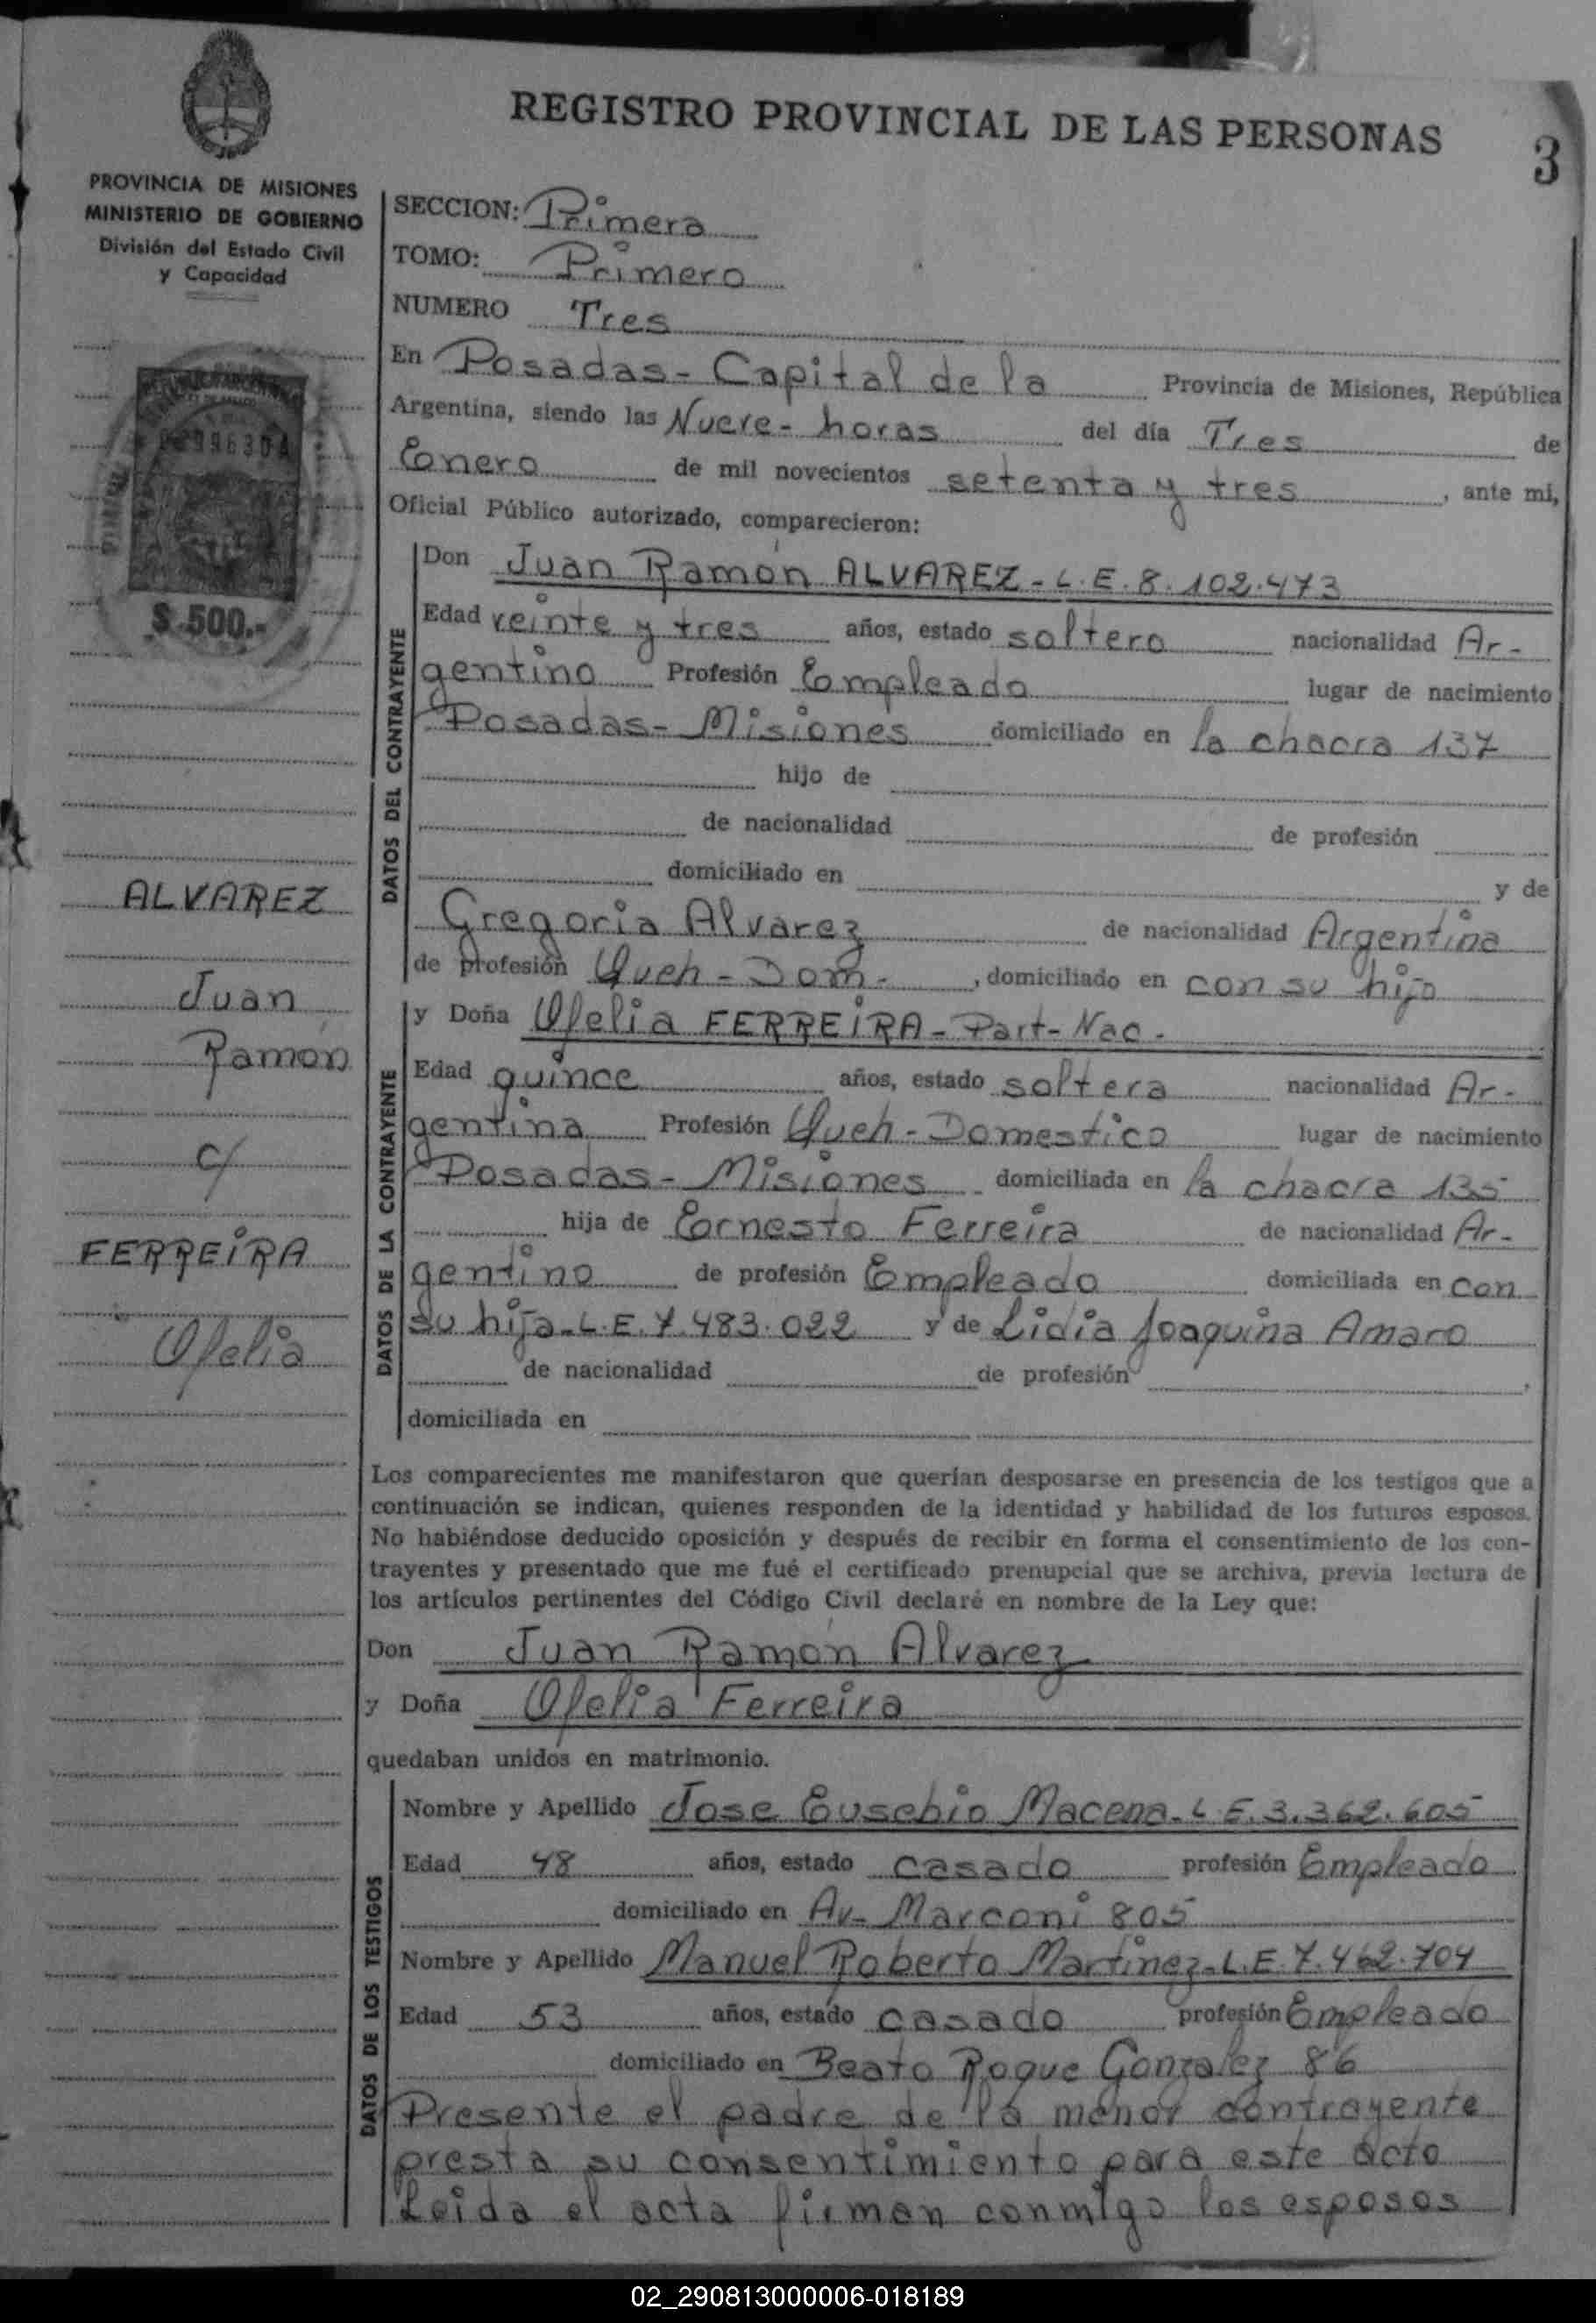 REGISTRO PROVINCIAL DE LAS PERSONAS
3
PROVINCIA DE MISIONES
MINISTERIO DE GOBIERNO
División del Estado Civil
y Capacidad
$ 500.-
ALVAREZ
Juan
Ramón
c/
FERREIRA
Ofelia
SECCION: Primera
TOMO: Primero
NUMERO Tres
En Posadas - Capital de la Provincia de Misiones, República
Argentina, siendo las Nueve - horas del día Tres de
Enero de mil novecientos setenta y tres, ante mí,
Oficial Público autorizado, comparecieron:
DATOS DEL CONTRAYENTE
Don Juan Ramón ALVAREZ - L.E. 8.102.473
Edad veinte y tres años, estado soltero nacionalidad Ar-
gentino Profesión Empleado lugar de nacimiento
Posadas - Misiones domiciliado en la chacra 137
hijo de
de nacionalidad de profesión
domiciliado en y de
Gregoria Alvarez de nacionalidad Argentina
de profesión Queh - Dom - , domiciliado en con su hijo
DATOS DE LA CONTRAYENTE
y Doña Ofelia FERREIRA - Part - Nac -
Edad quince años, estado soltera nacionalidad Ar-
gentina Profesión Queh - Domestico lugar de nacimiento
Posadas - Misiones domiciliada en la chacra 135
hija de Ernesto Ferreira de nacionalidad Ar-
gentino de profesión Empleado domiciliada en con
su hija - L.E. 7.483.022 y de Lidia Joaquina Amaro
de nacionalidad de profesión ,
domiciliada en
Los comparecientes me manifestaron que querían desposarse en presencia de los testigos que a
continuación se indican, quienes responden de la identidad y habilidad de los futuros esposos.
No habiéndose deducido oposición y después de recibir en forma el consentimiento de los con-
trayentes y presentado que me fué el certificado prenupcial que se archiva, previa lectura de
los artículos pertinentes del Código Civil declaré en nombre de la Ley que:
Don Juan Ramón Alvarez
y Doña Ofelia Ferreira
quedaban unidos en matrimonio.
DATOS DE LOS TESTIGOS
Nombre y Apellido Jose Eusebio Macena - L.E. 3.362.605
Edad 48 años, estado casado profesión Empleado
domiciliado en Av - Marconi 805
Nombre y Apellido Manuel Roberto Martinez - L.E. 7.462.704
Edad 53 años, estado casado profesión Empleado
domiciliado en Beato Roque Gonzalez 86
Presente el padre de la menor contrayente
presta su consentimiento para este acto
Leida el acta firman conmigo los esposos
02_290813000006-018189